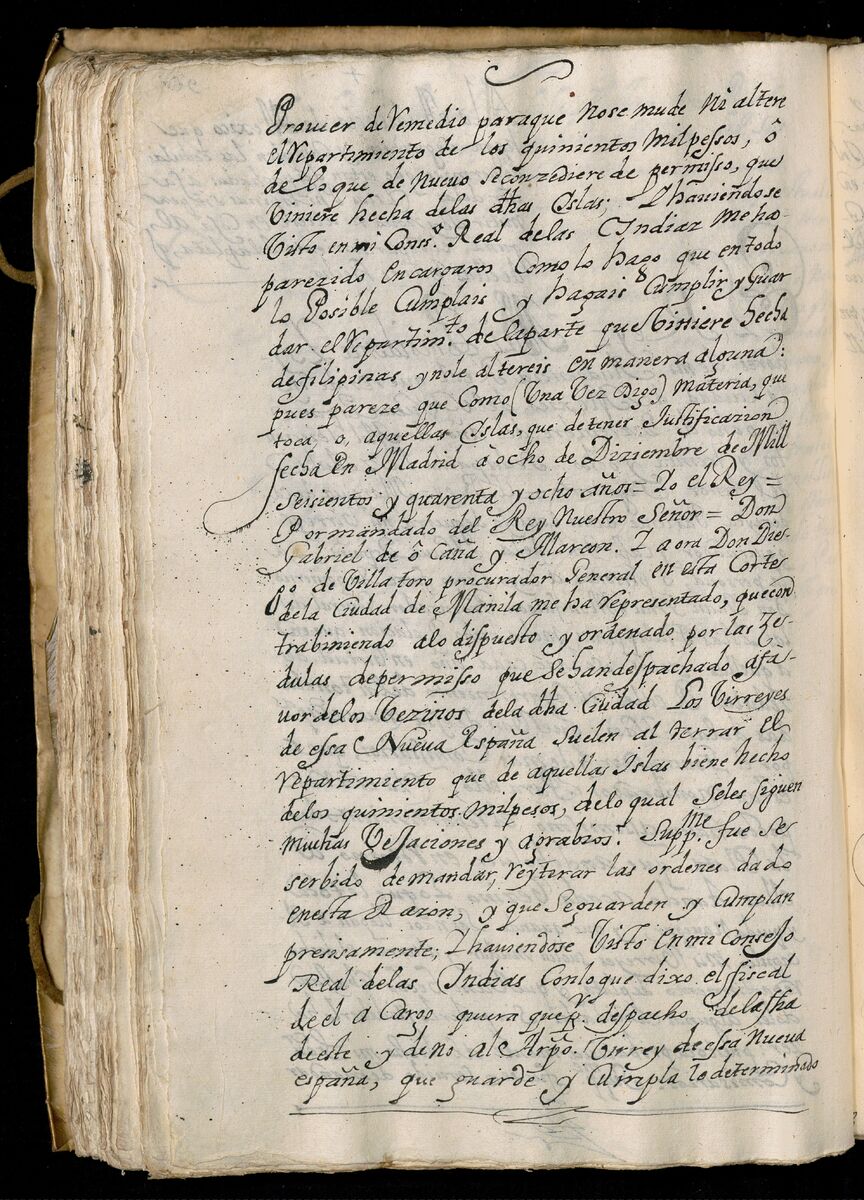 Proueer de Remedio paraque nose mude Ni altere
el Repartimiento de los quinientos milpessos, ô
de lo que de nuevo se conzediere de permisso, que
Viniere hecha delas dhas Islas; Y haviendose
Visto en mi Cons.º Real de las Indias me ha
parezido encargaros Como lo hago que en todo
lo Posible Cumplais y hagais Cumplir y Guar
dar el Repartim.to de la parte que Viniere hecha
de filipinas y nole altereis en manera alguna:
pues pareze que Como (Una Vez Digo) materia, que
toca, o, aquellas Islas, que de tener Justificazion
fecha en Madrid a ocho de Diziembre de Mill
seisientos y quarenta y ocho años = Yo el Rey =
Por mandado del Rey Nuestro Señor = Don
Gabriel de ô Caña y Alarcon. Y aora Don Die-
go de Villatoro procurador General en esta Corte
dela Ciudad de Manila me ha representado, que con
trabiniendo alo dispuesto y ordenado por las Ze-
dulas de permisso que se han despachado afa-
uor delos Vezinos dela dha Ciudad Los Virreyes
de essa Nueva España suelen alterrar El
repartimiento que de aquellas Islas biene hecho
delos quinientos milpesos, delo qual seles siguen
muchas Vejaciones y agrabios. Supp.me fue se
serbido demandar, reyterar las ordenes dado
enesta Razon, y que Seguarden y Cumplan
presisamente; Y haviendose Visto en mi Consejo
Real delas Indias Conlo que dixo el fiscal
de el a Cargo quiera que p.r despacho delastha
de este y de no al Arpo. Virrey de essa Nueva
españa, que guarde y Cumpla lo determinado